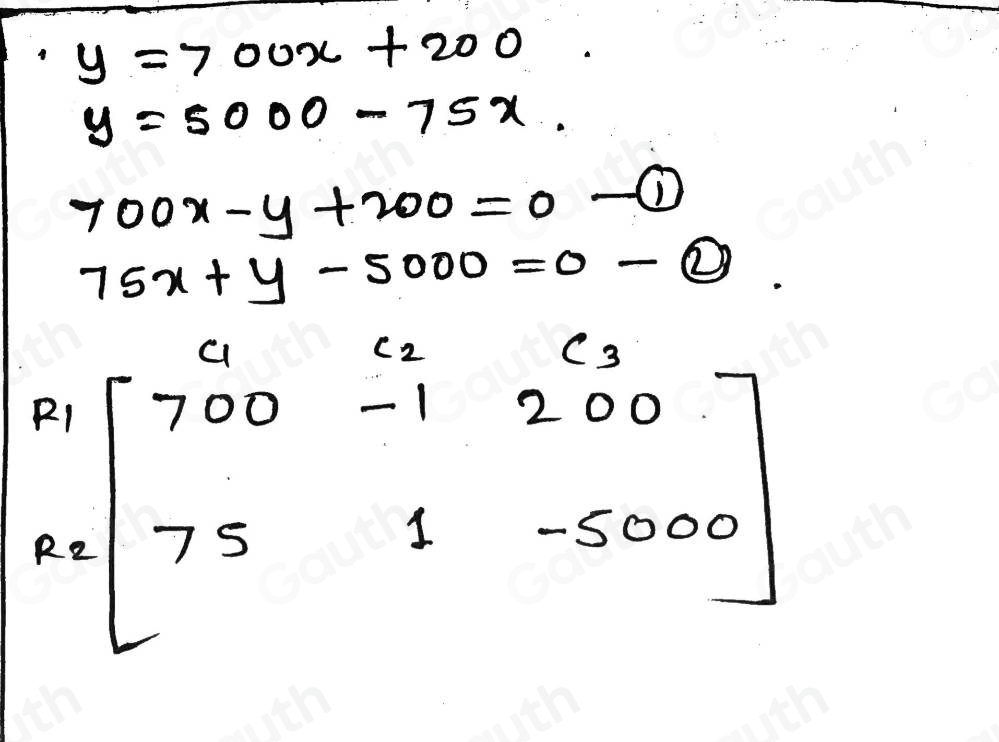 · y = 700x + 200 .
y = 5000 - 75x .
700x - y + 200 = 0 - ①
75x + y - 5000 = 0 - ② .
C1 C2 C3
R1 [ 700 -1 200 ]
R2 [ 75 1 -5000 ]
Gauth